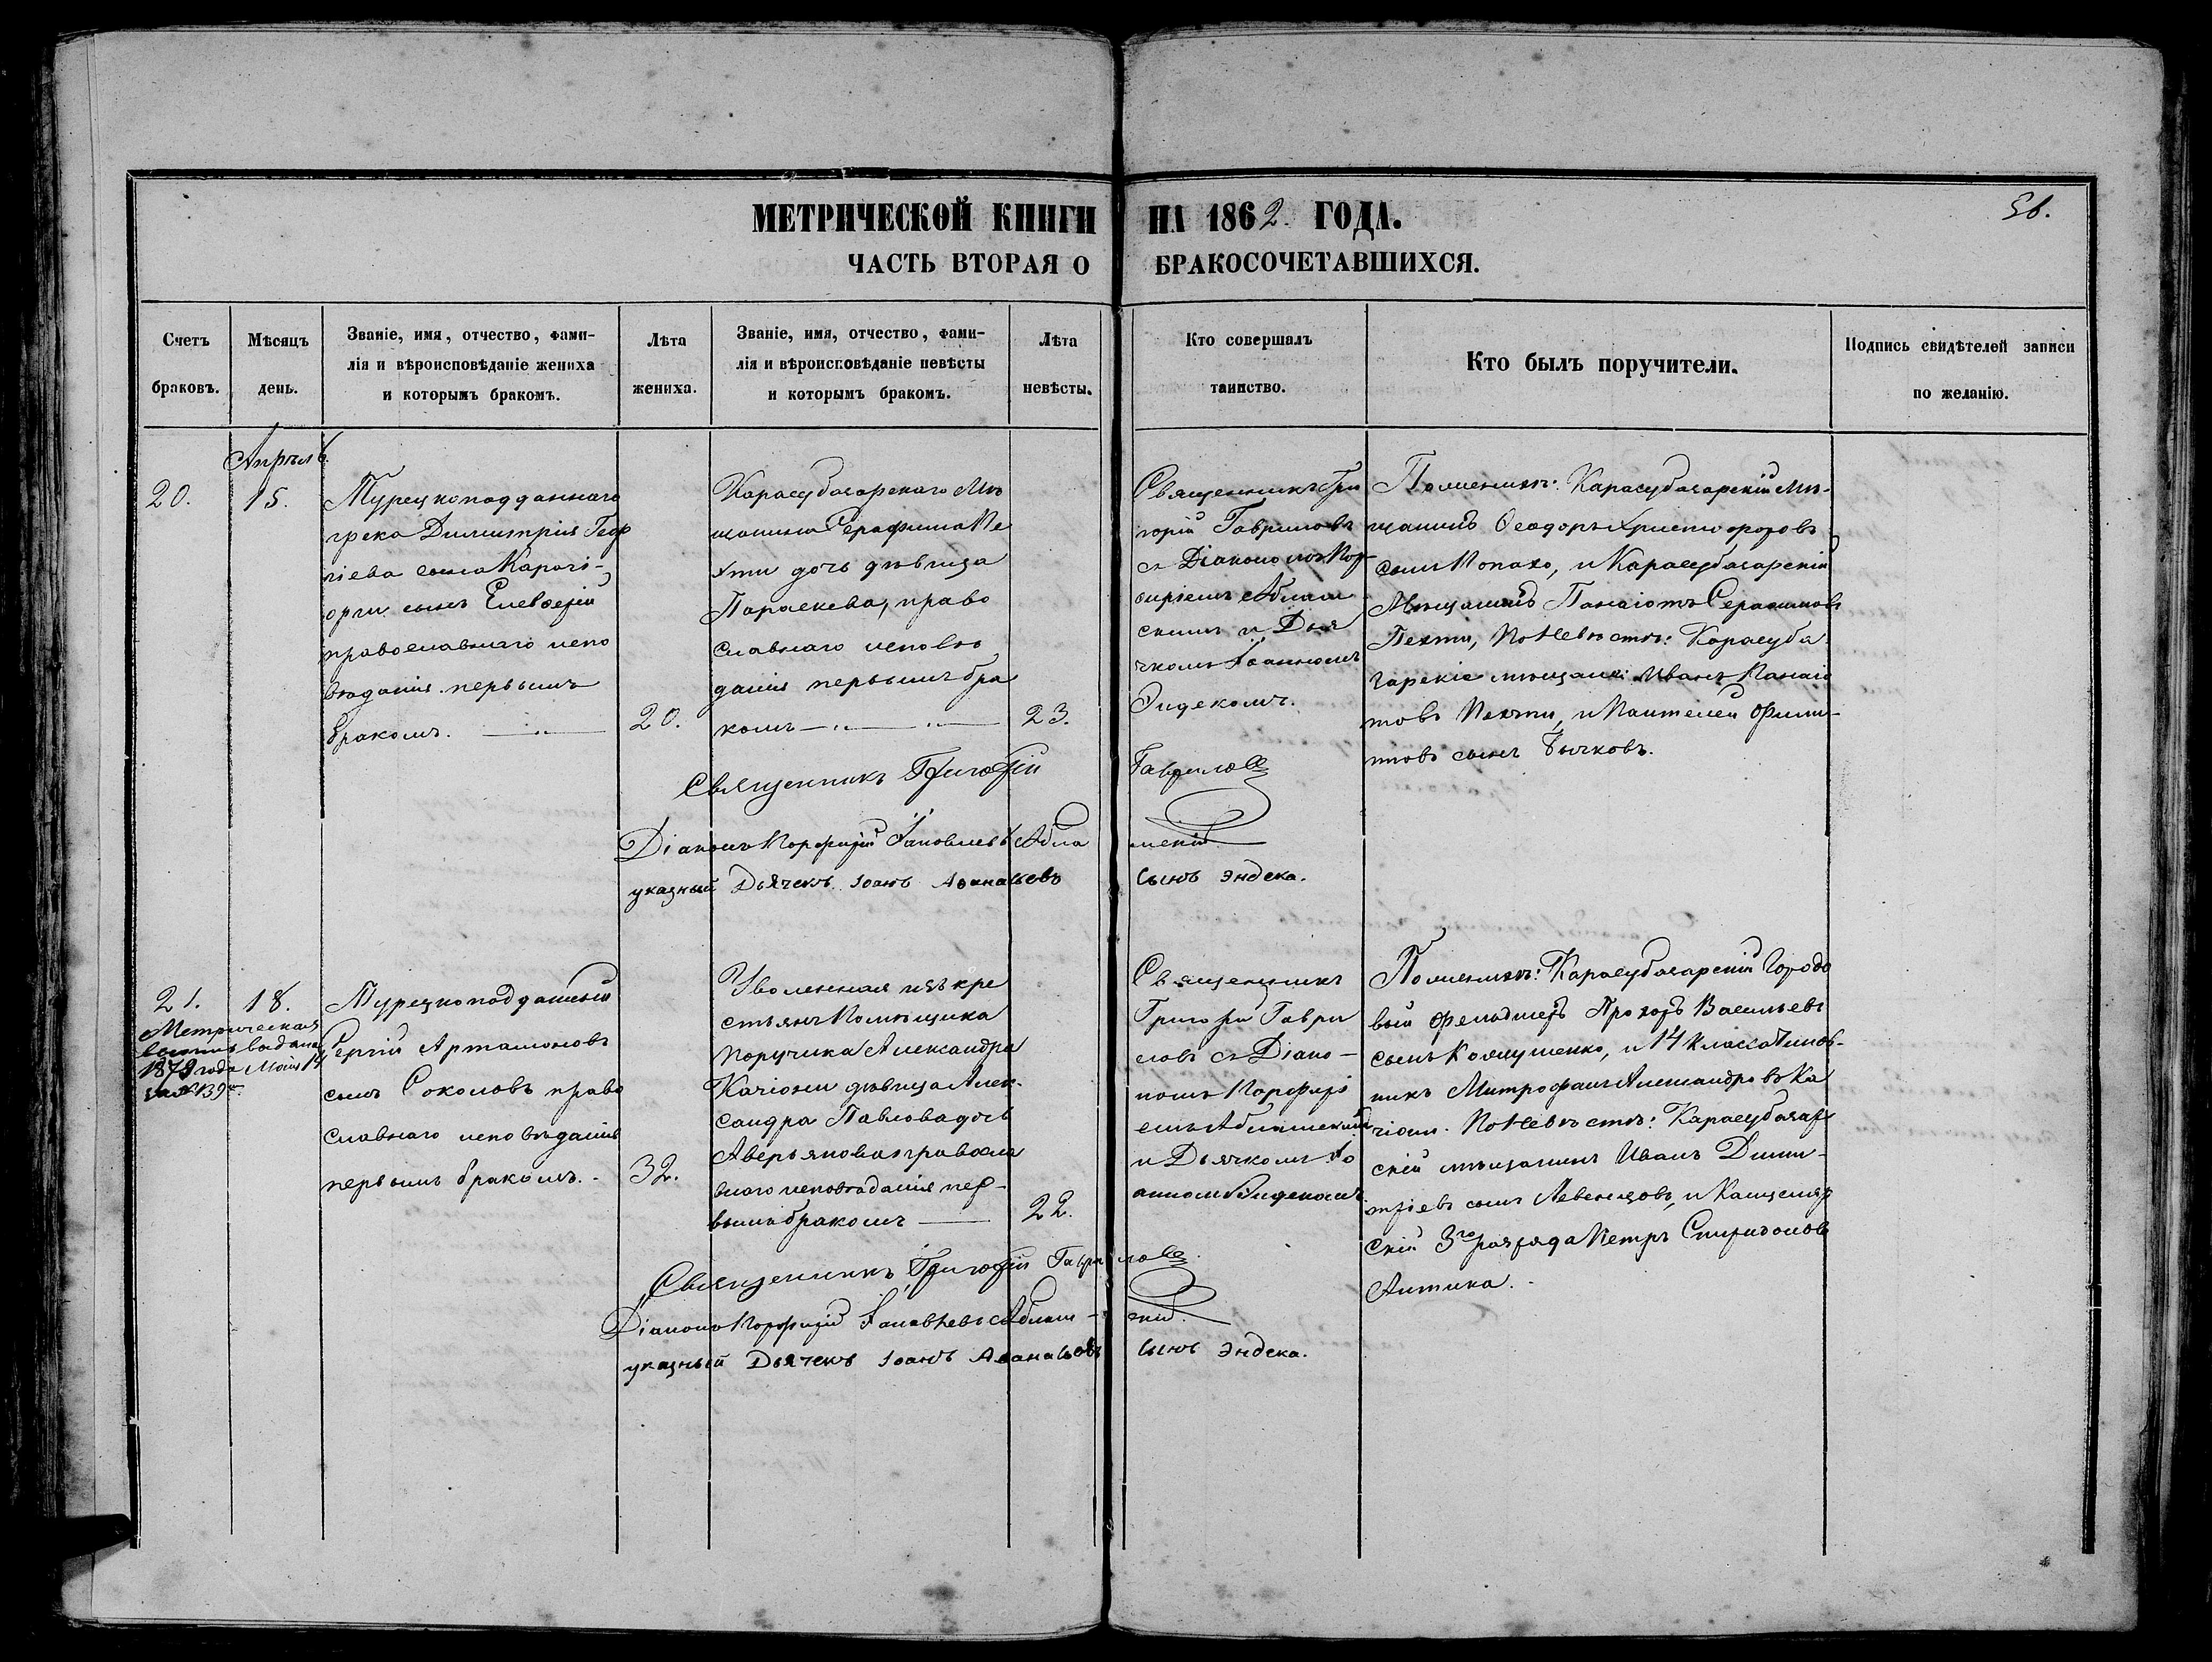 МЕТРИЧЕСКОЙ КНИГИ НА 1862 ГОДА.
ЧАСТЬ ВТОРАЯ О БРАКОСОЧЕТАВШИХСЯ.
Счетъ
браковъ.
Мѣсяцъ
день.
Званіе, имя, отчество, фами-
лія и вѣроисповѣданіе жениха
и которымъ бракомъ.
Лѣта
жениха.
Званіе, имя, отчество, фами-
лія и вѣроисповѣданіе невѣсты
и которымъ бракомъ.
Лѣта
невѣсты.
Кто совершалъ
таинство.
Кто былъ поручители.
Подпись свидѣтелей записи
по желанію.
Апрѣль
20.
15.
Турецкоподданнаго
грека Димитрія Геор
гіева сына Карагі-
орги сынъ Елевѳерій
православнаго испо
вѣданія первымъ
бракомъ.
20.
Карасубазарскаго Мѣ
щанина Серафима Пе
хти дочь дѣвица
Параскева, право
славнаго исповѣ
данія первымъ бра
комъ
23.
Священникъ Гри
горій Гавриловъ
съ Діакономъ Пор
фиріемъ
скимъ и Дья
чкомъ Іоанномъ
Эндекомъ.
По женихѣ: Карасубазарскій Мѣ-
щанинъ Ѳеодоръ Христофоровъ
сынъ Попахо, и Карасубазарскій
Мѣщанинъ Панаіотъ Серафимовъ
Пехти, По Невѣстѣ: Карасуба
зарскіе мѣщане: Иванъ Панаіо
товъ Пехти, и Пантелей Филип-
повъ сынъ Бычковъ.
Священникъ Григорій Гавриловъ
Діаконъ Порфирій Іаковлевъ
указный Дьячекъ Іоанъ Аѳанасьевъ сынъ Эндека.
21.
18.
Метрическая
выпись выдана
1878 года Маія 14
за № 139м.
Турецкоподданный
Сергій Артамоновъ
сынъ Соколовъ право
славнаго исповѣданія
первымъ бракомъ.
32.
Уволенная изъ кре
стьянъ Помѣщика
Поручика Александра
Качіони дѣвица Алек-
сандра Павлова дочь
Аверьянова православ
наго исповѣданія пер-
вымъ бракомъ
22.
Священникъ
Григорій Гаври
ловъ съ Діако-
номъ Порфирі
емъ
и Дьячкомъ Іо
анномъ Эндекомъ
По женихѣ: Карасубазарскій Городо
вый фельдшеръ Прохоръ Васильевъ
сынъ и 14 класса Чинов-
никъ Митрофанъ Александровъ Ка
чіони. По Невѣстѣ: Карасубазар
скій мѣщанинъ Иванъ Дими-
тріевъ сынъ Левенцовъ, и Канцеляр
скій 3го разряда Петръ Спиридоновъ
Антика.
Священникъ Григорій Гавриловъ
Діаконъ Порфирій Іаковлевъ
указный Дьячекъ Іоанъ Аѳанасьевъ сынъ Эндека.